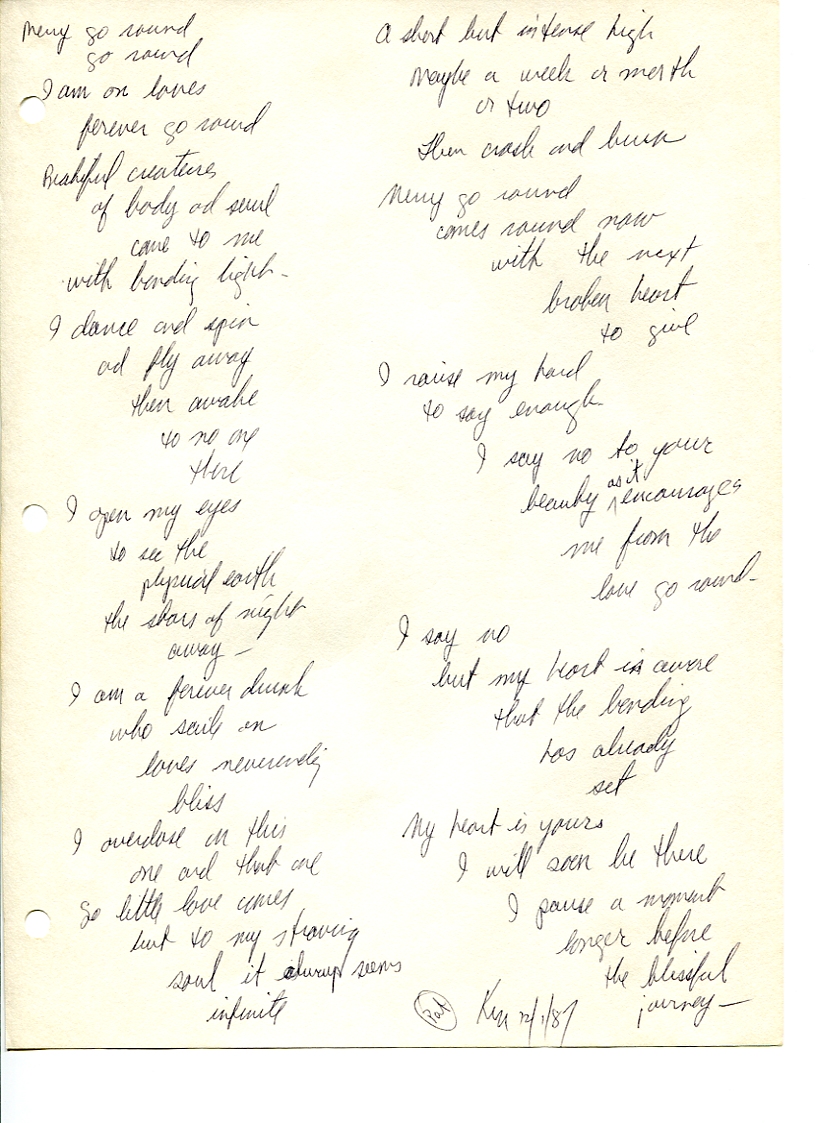 Merry go round
go round
I am on loves
forever go round
Beautiful creatures
of body ad soul
come to me
with bending light -
I dance and spin
ad fly away
then awake
to no one
there
I open my eyes
to see the
physical earth
the stars of night
away -
I am a forever drunk
who sails on
loves neverending
bliss
I overdose on this
one and that one
So little love comes
but to my starving
soul it always seems
infinite
A short but intense high
Maybe a week or month
or two
then crash and burn
Merry go round
comes round now
with the next
broken heart
to give
I raise my hand
to say enough -
I say no to your
beauty as it encourages
me from the
love go round -
I say no
but my heart is aware
that the bending
has already
set
My heart is yours
I will soon be there
I pause a moment
longer before
the blissful
journey -
Pat
Ken 12/1/87